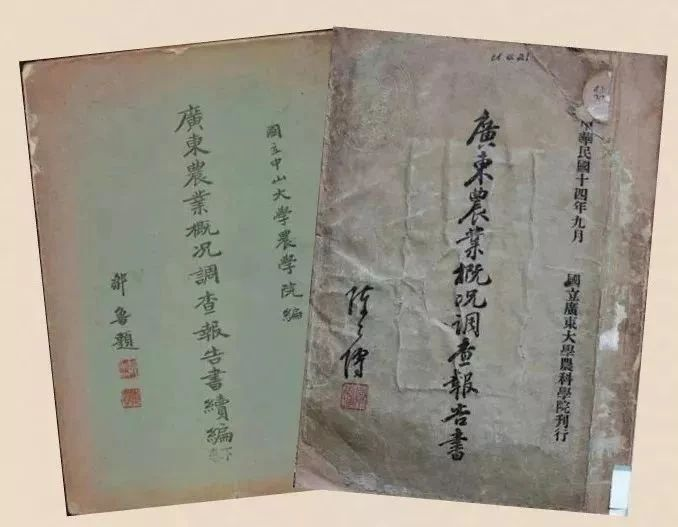 國立中山大學農學院編
廣東農業概況調查報告書續編
下卷
鄒魯題
華民國十四年九月
國立廣東大學農科學院刊行
廣東農業概況調查報告書